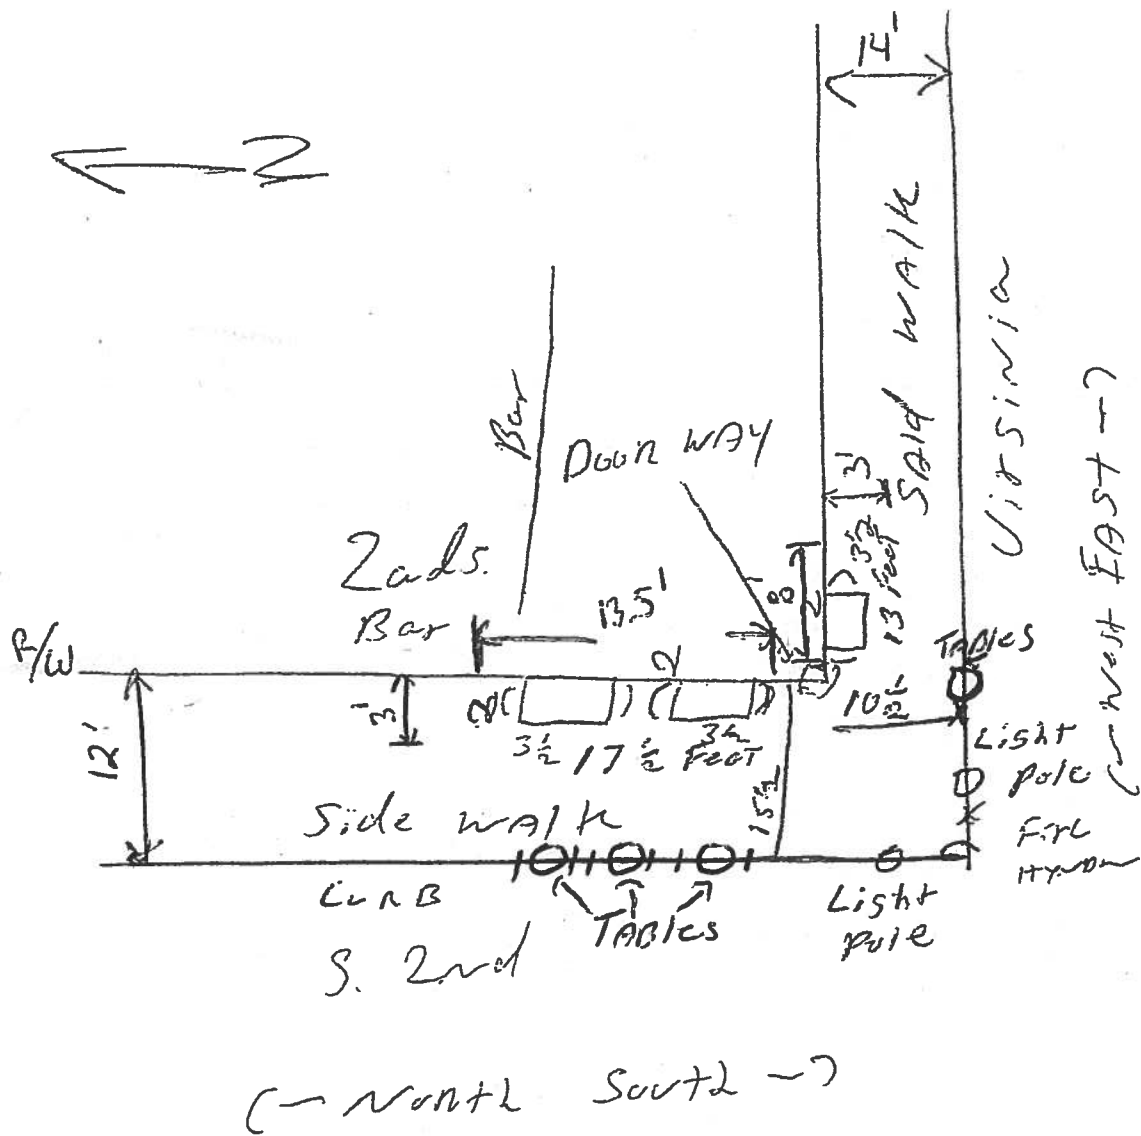 14'
SAId WALK
Virginia
(- West EAST -)
Bar
DOOR WAY
3'
Zads.
Bar
13.5'
8'
2
3 1/2
13 Feet
R/W
TABLES
10 1/2
2
3'
12'
3 1/2
17 1/2
3 1/2
Feet
15 1/2
Light
Pole
Side WALK
FirE
CURB
TABLES
Light
Pole
S. 2nd
(- North South -)